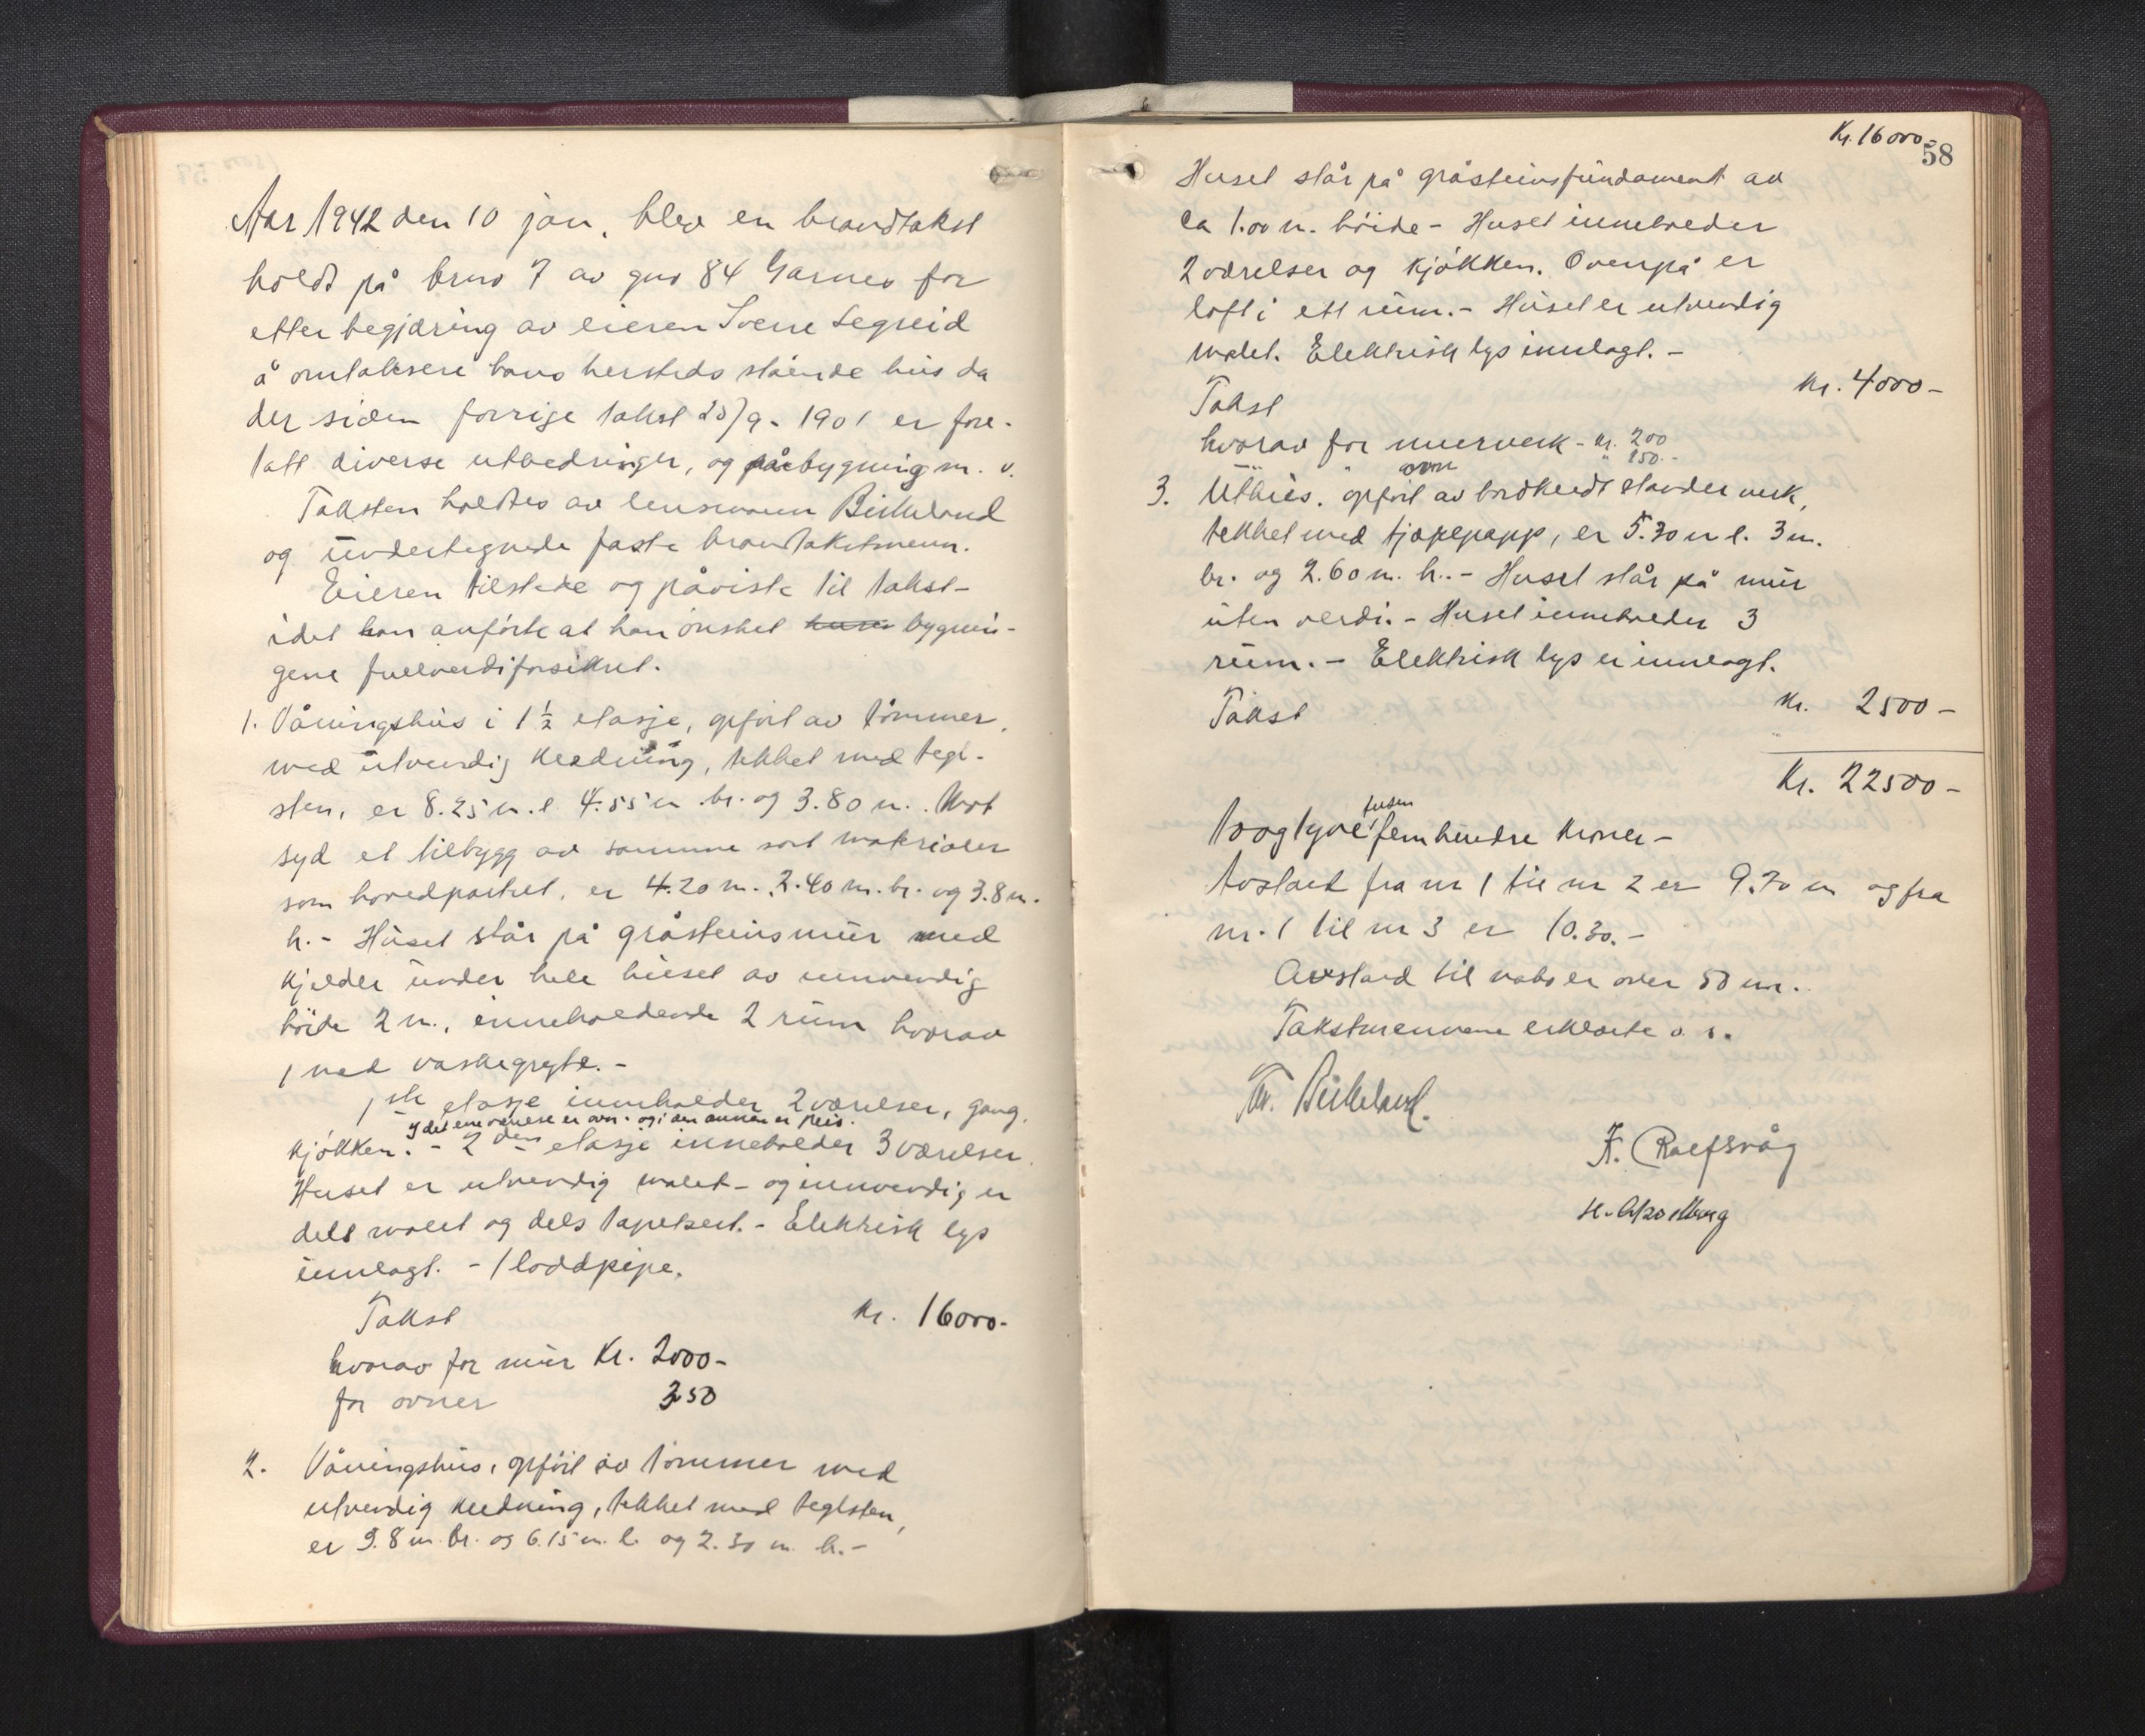 Aar 1942 den 10 jan. blev en brandtakst
holdt på brno 7 av gno 84 Garnes for
etter begjæring av eieren Sverre Segreid
å omtaksere hans hersteds stående hus da
der siden forrige takst 25/9 - 1901 er fore-
tatt diverse utbedringer, og påbygning m. v.
Taksten holdtes av lensmann Birkeland
og undertegnede faste brandtakstmenn.
Eieren tilstede og påviste til takst-
idet han anførte at han ønsket huse bygnin-
gene fullverdiforsikret.
1. Våningshus i 1 1/2 etasje, opført av tømmer,
med utvendig kledning, tekket med tegl-
sten, er 8.25 m. l. 4.55 m. br. og 3.80 m. Mot
syd et tilbygg av samme sort materialer
som hovedpartiet, er 4.20 m. 2.40 m. br. og 3.8 m.
h. - Huset står på gråsteinsmur med
kjelder under hele huset av innvendig
høide 2 m., inneholdende 2 rum hvorav
1 med vaskegryte. -
1ste etasje inneholder 2 værelser, gang,
I det ene værelse er ovn - og i den annen er peis.
kjøkken. - 2den etasje inneholder 3 værelser.
Huset er utvendig malet - og innvendig er
dels malet og dels tapetsert. - Elektrisk lys
innlagt. - 1 loddpipe.
Takst kr. 16000-
hvorav for mur Kr. 2000-
for ovner 350
2. Våningshus, opført av tømmer med
utvendig kledning, tekket med teglsten,
er 9.8 m. br. og 6.15 m. l. og 2.30 m. h. -
Kr. 16000-
58
Huset står på gråsteinsfundament av
ca 1.00 m. høide - Huset inneholder
2 værelser og kjøkken. Ovenpå er
loft i ett rum. - Huset er utvendig
malet. Elektrisk lys innlagt. -
Takst kr. 4000-
hvorav for murverk - kr. 200
" " ovn " 150.-
3. Uthus, opført av bordkledt stander verk,
tekket med tjærepapp, er 5.30 m l. 3 m.
br. og 2.60 m. h. - Huset står på mur
uten verdi. - Huset inneholder 3
rum. - Elektrisk lys er innlagt.
Takst kr. 2500-
Kr. 22500-
tusen
toogtyve femhundre kroner -
Avstand fra nr 1 til nr 2 er 9.70 m og fra
nr. 1 til nr 3 er 10.30. -
Avstand til nabo er over 50 m.
Takstmennene erklærte o. s.
Birkeland.
K. Roefsvåg